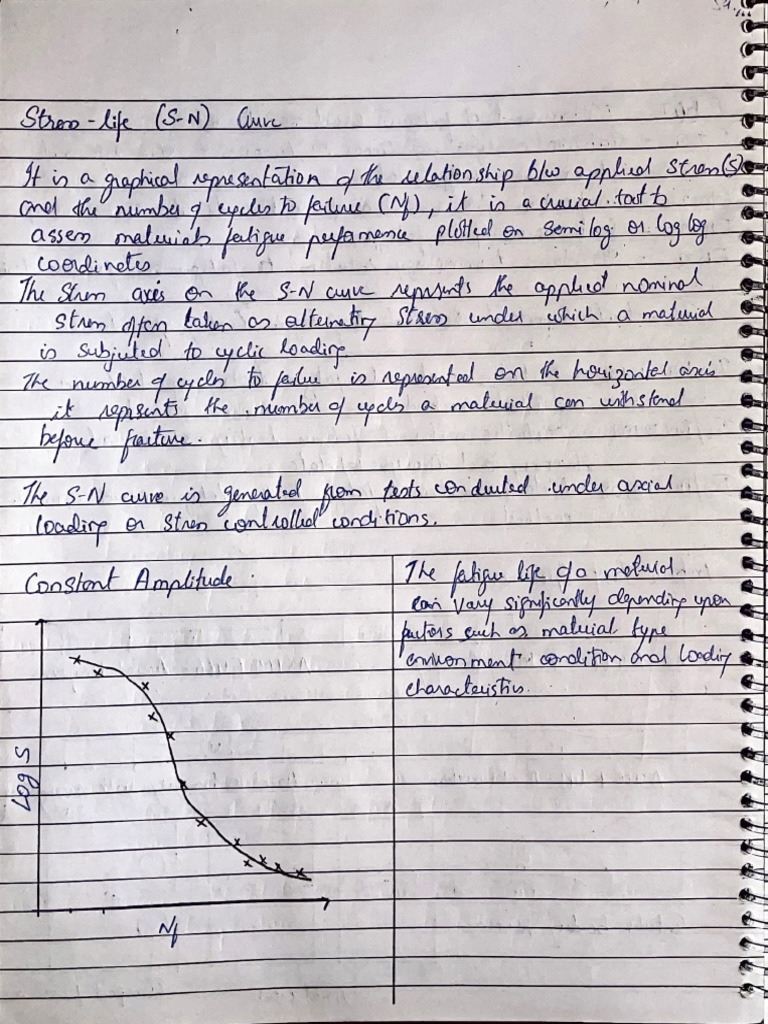 Stress-life (S-N) Curve
It is a graphical representation of the relationship b/w applied stress(S)
and the number of cycles to failure (Nf), it is a crucial tool to
assess materials fatigue performance plotted on semilog or log log
coordinates
The Stress axis on the S-N curve represents the applied nominal
stress often taken as alternating stress under which a material
is subjected to cyclic loading
The number of cycles to failure is represented on the horizontal axis
it represents the number of cycles a material can withstand
before fracture.
The S-N curve is generated from tests conducted under axial
loading or stress controlled conditions.
Constant Amplitude.
Log S
Nf
The fatigue life of a material
can vary significantly depending upon
factors such as material type
environment condition and loading
characteristics.